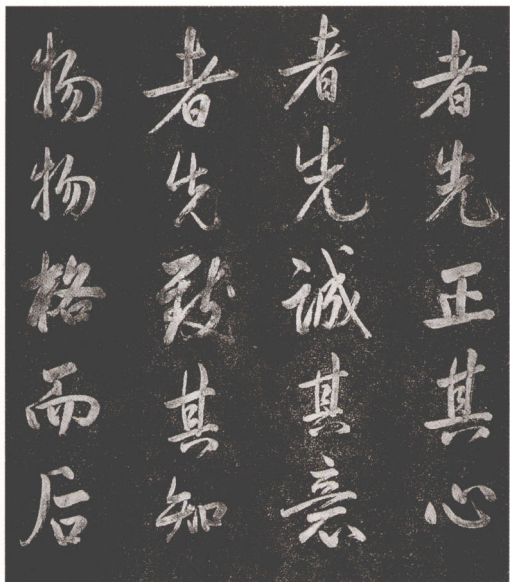 者先正其心
者先誠其意
者先致其知
物物格而后